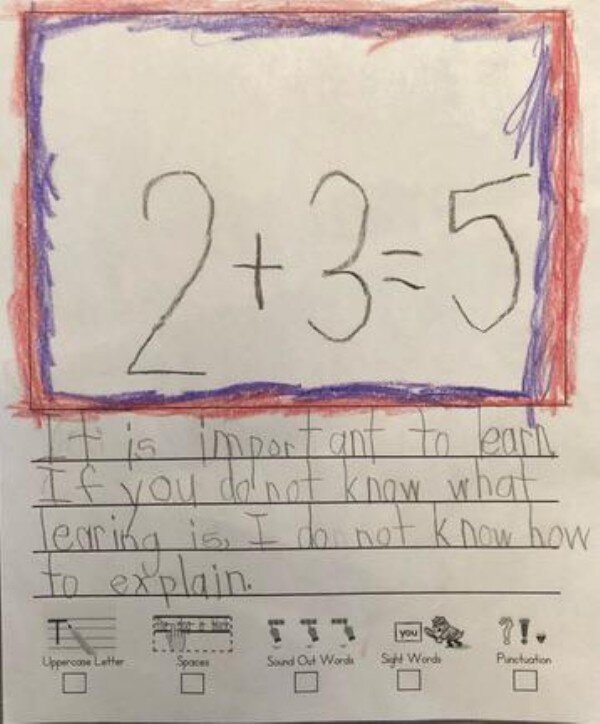 2+3=5
It is important to learn.
If you do not know what
learing is, I do not know how
to explain.
T you ?!.
Uppercase Letter Spaces Sound Out Words Sight Words Punctuation